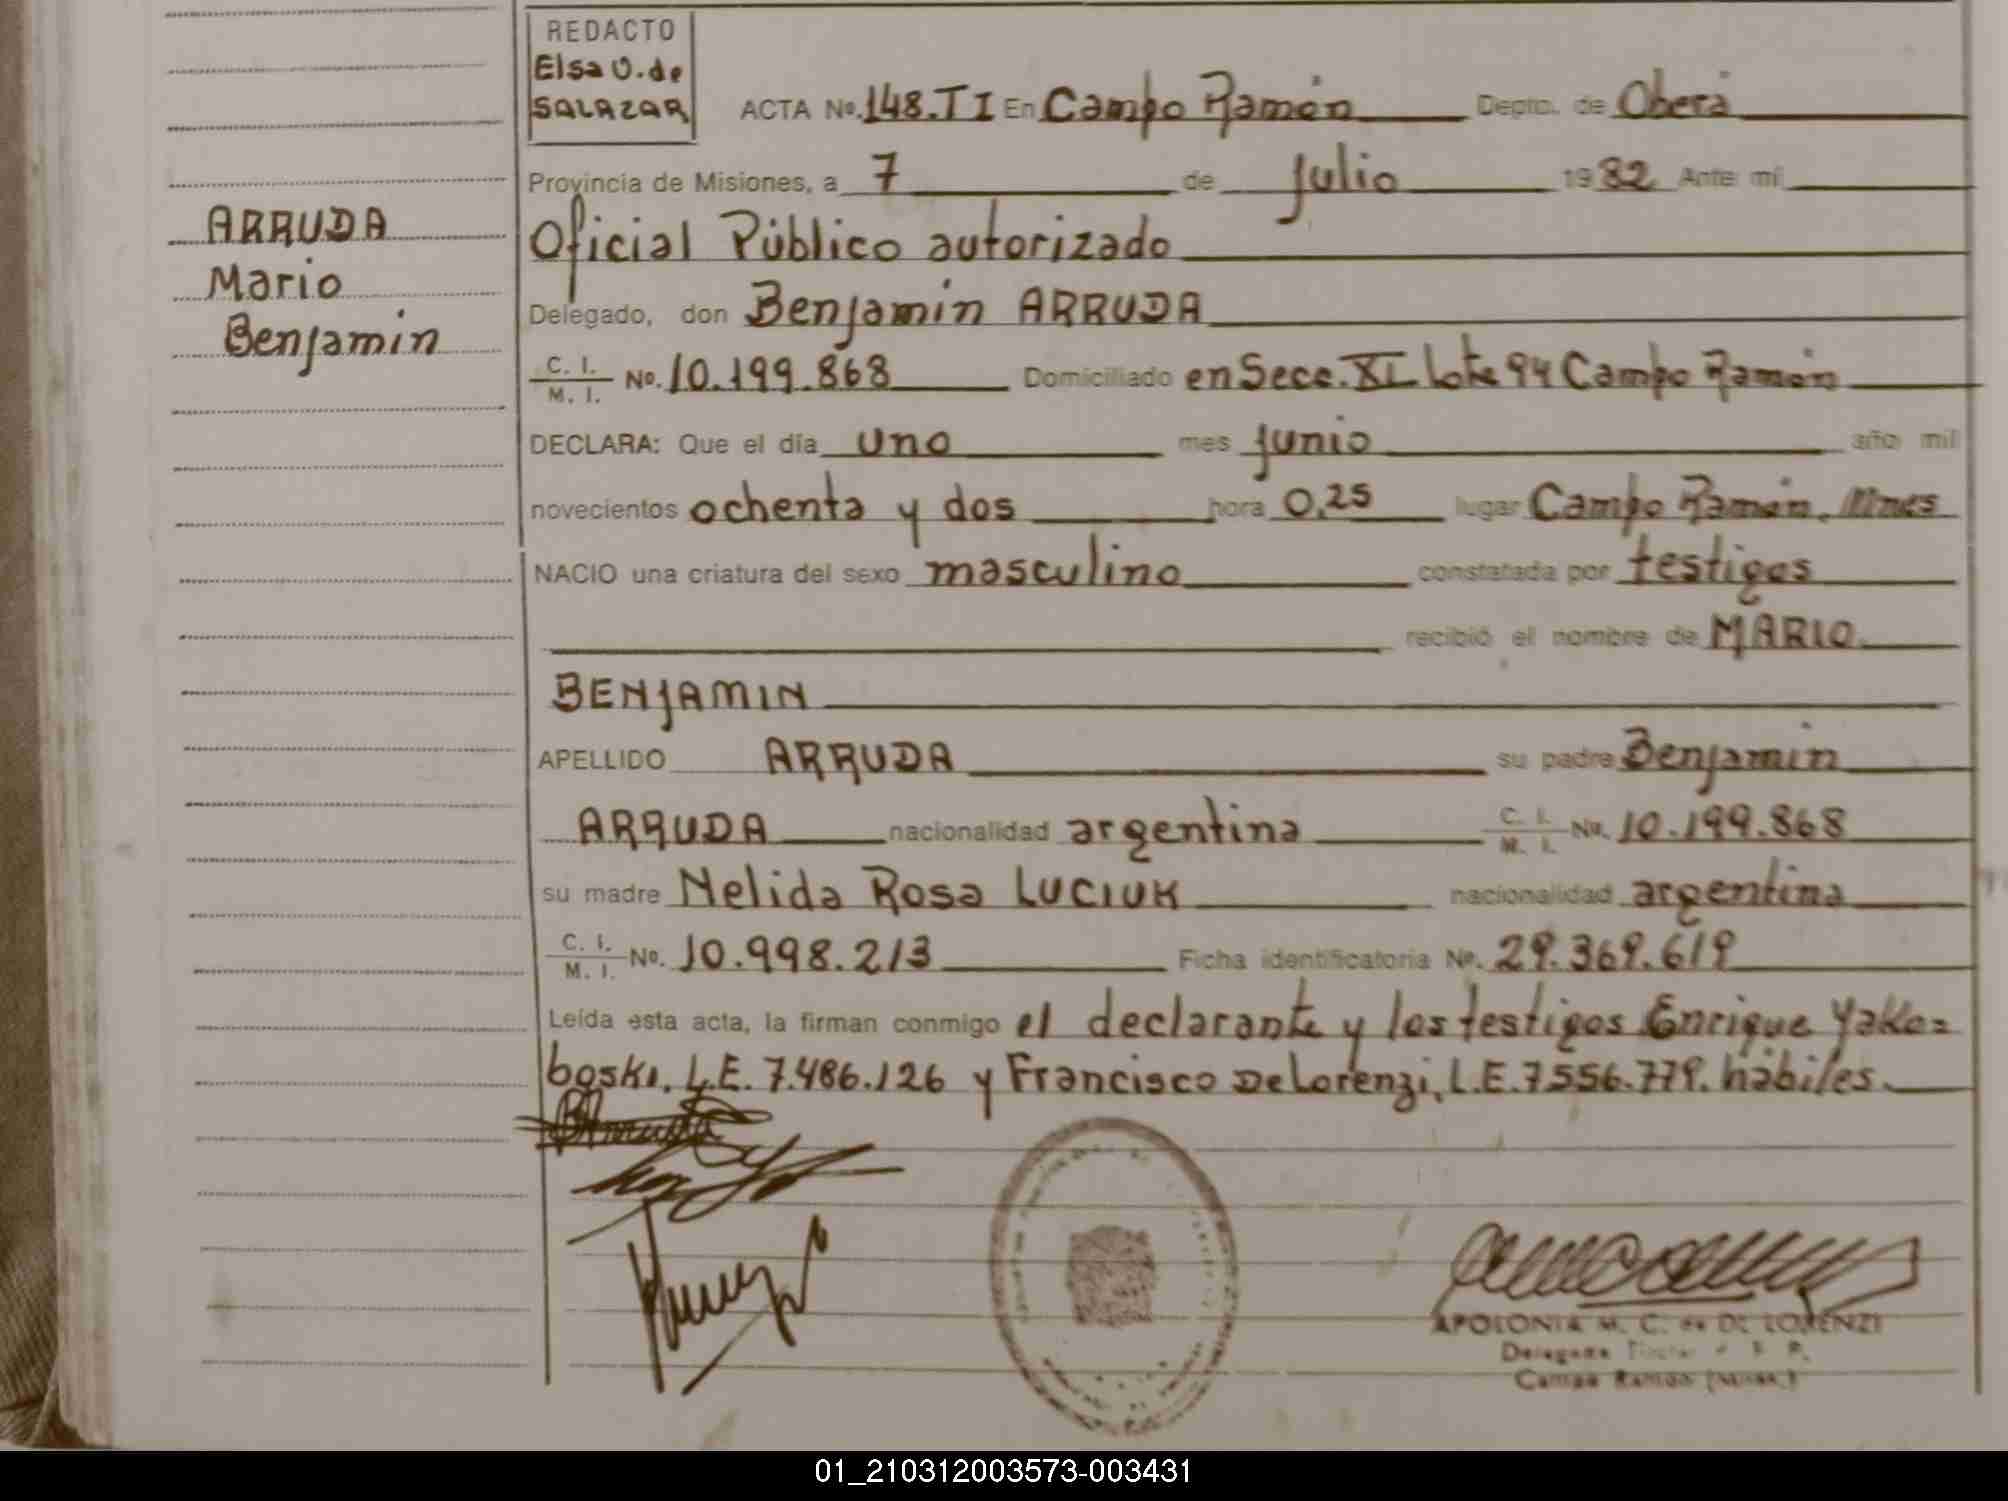 REDACTO
Elsa V. de
SALAZAR
ACTA No. 148.TI En Campo Ramón Depto. de Oberá
Provincia de Misiones, a 7 de julio 1982 Ante mí
Oficial Público autorizado
ARRUDA
Mario
Benjamin
Delegado, don Benjamin ARRUDA
C. I.
M. I. No. 10.199.868 Domiciliado en Secc. XI lote 94 Campo Ramón
DECLARA: Que el día uno mes junio año mil
novecientos ochenta y dos hora 0,25 lugar Campo Ramón. Mnes
NACIO una criatura del sexo masculino constatada por testigos
recibió el nombre de MARIO
BENJAMIN
APELLIDO ARRUDA su padre Benjamin
ARRUDA nacionalidad argentina C. I.
M. I. No. 10.199.868
su madre Nelida Rosa LUCIUK nacionalidad argentina
C. I.
M. I. No. 10.998.213 Ficha identificatoria No. 29.369.619
Leída esta acta, la firman conmigo el declarante y los testigos Enrique Yako=
boski. L.E. 7.486.126 y Francisco De Lorenzi, L.E. 7.556.779. hábiles.
APOLONIA M. C. de DE LORENZI
Delegada Titular
Campo Ramón
01_210312003573-003431